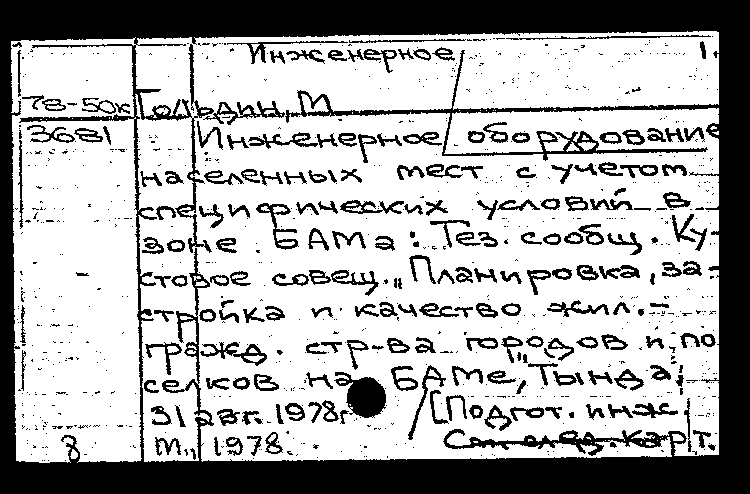 Инженерное 1.
78-50к Гольдин, М.
3681 Инженерное оборудование
населенных мест с учетом
специфических условий в
зоне БАМа: Тез. сообщ. Ку-
стовое совещ. „Планировка, за-
стройка и качество жил.-
гражд. стр-ва городов и по
селков на БАМе“, Тында,
31 авг. 1978г. [Подгот. инж.
8 М., 1978.